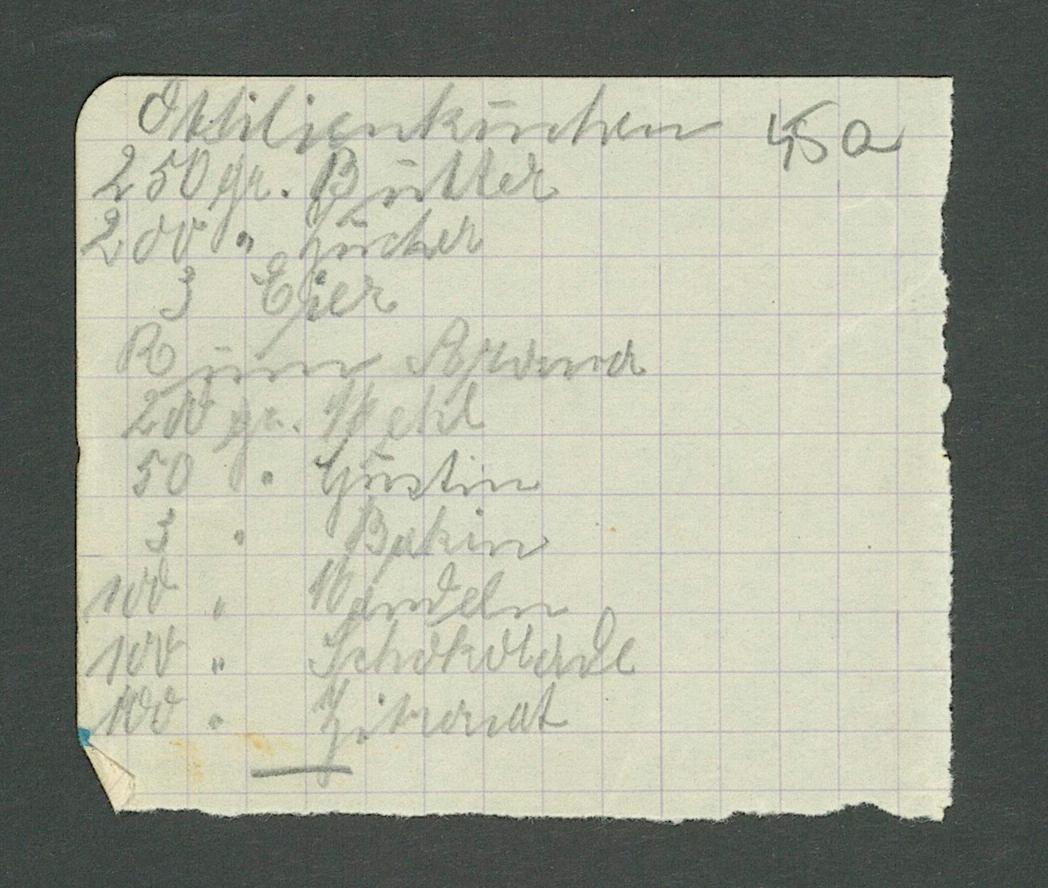 Ottilienkuchen 45a
250 gr. Butter
200 " Zucker
3 Eier
Rum Aroma
200 gr. Mehl
50 " Gustin
3 " Bakin
100 " Mandeln
100 " Schokolade
100 " Zitronat